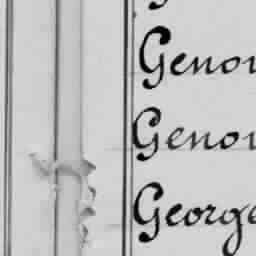 Genov
Genov
George